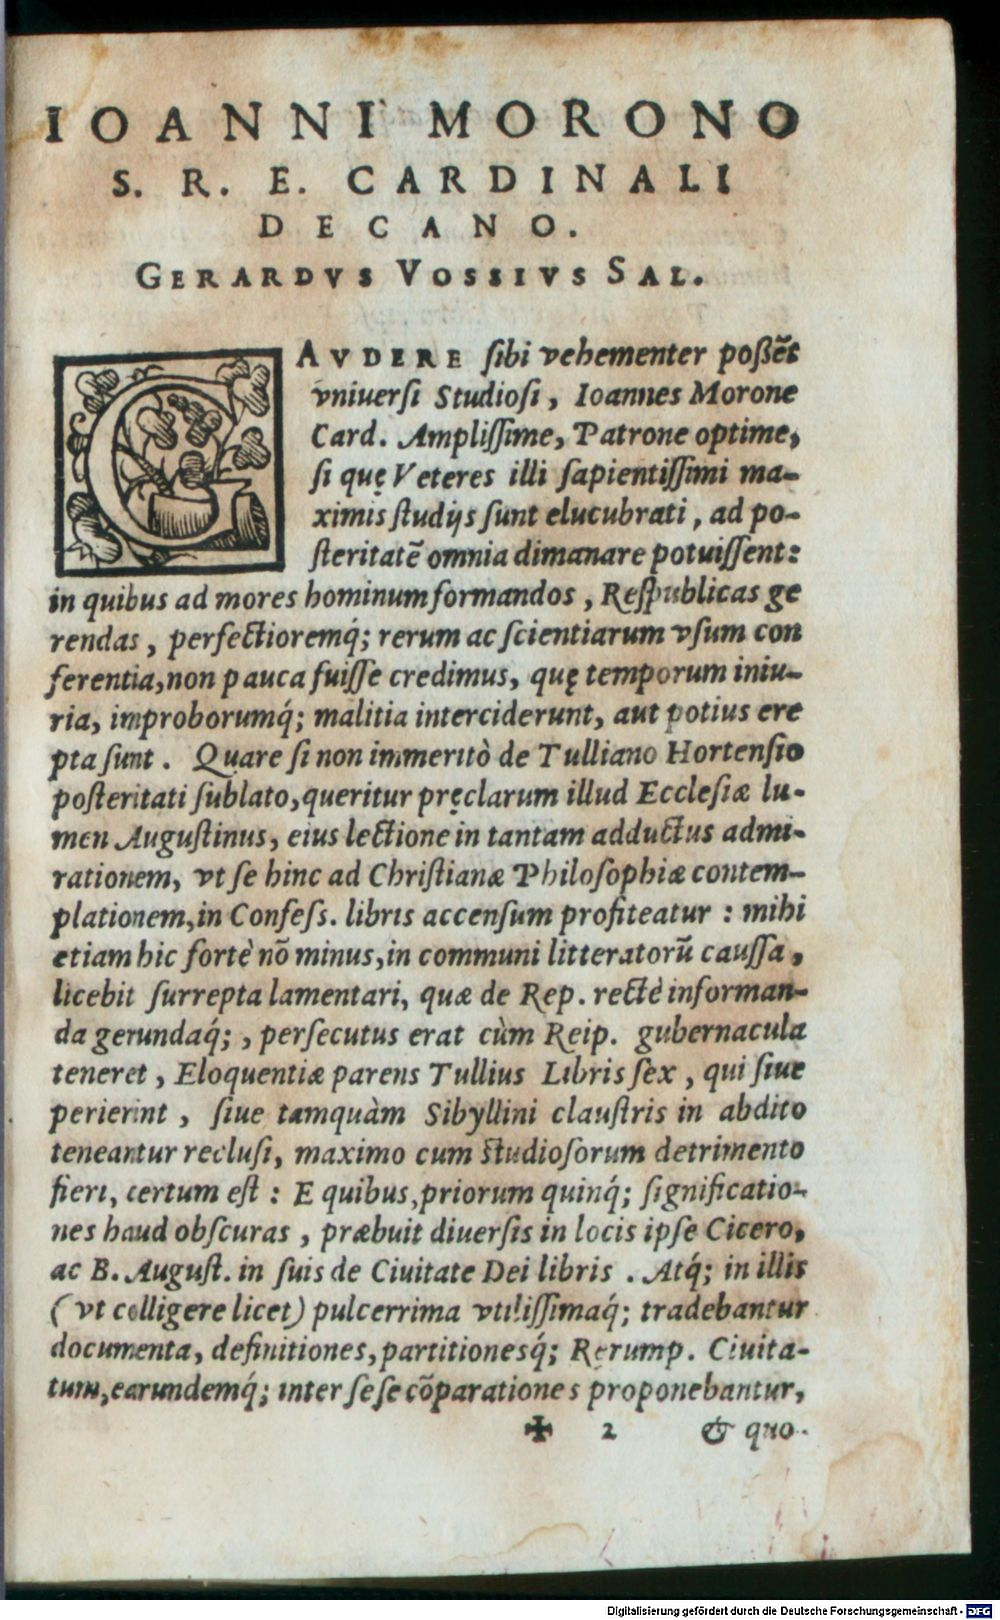 IOANNI MORONO
S. R. E. CARDINALI
DECANO.
GERARDVS VOSSIVS SAL.
GAVDERE sibi vehementer poßēt
vniuersi Studiosi, Ioannes Morone
Card. Amplissime, Patrone optime,
si quę Veteres illi sapientissimi ma-
ximis studijs sunt elucubrati, ad po-
steritatē omnia dimanare potuissent:
in quibus ad mores hominum formandos, Respublicas ge
rendas, perfectioremq́; rerum ac scientiarum vsum con
ferentia, non pauca fuisse credimus, quę temporum iniu-
ria, improborumq́; malitia interciderunt, aut potius ere
pta sunt. Quare si non immeritò de Tulliano Hortensio
posteritati sublato, queritur pręclarum illud Ecclesiæ lu-
men Augustinus, eius lectione in tantam adductus admi-
rationem, vt se hinc ad Christianæ Philosophiæ contem-
plationem, in Confess. libris accensum profiteatur: mihi
etiam hic fortè nō minus, in communi litteratorū caussa,
licebit surrepta lamentari, quæ de Rep. rectè informan-
da gerundaq́;, persecutus erat cùm Reip. gubernacula
teneret, Eloquentiæ parens Tullius Libris sex, qui siue
perierint, siue tamquàm Sibyllini claustris in abdito
teneantur reclusi, maximo cum studiosorum detrimento
fieri, certum est: E quibus, priorum quinq́; significatio-
nes haud obscuras, præbuit diuersis in locis ipse Cicero,
ac B. August. in suis de Ciuitate Dei libris. Atq́; in illis
(vt colligere licet) pulcerrima vtilissimaq́; tradebantur
documenta, definitiones, partitionesq́; Rerump. Ciuita-
tum, earundemq́; inter sese cōparationes proponebantur,
✠ 2 & quo-
Digitalisierung gefördert durch die Deutsche Forschungsgemeinschaft - DFG